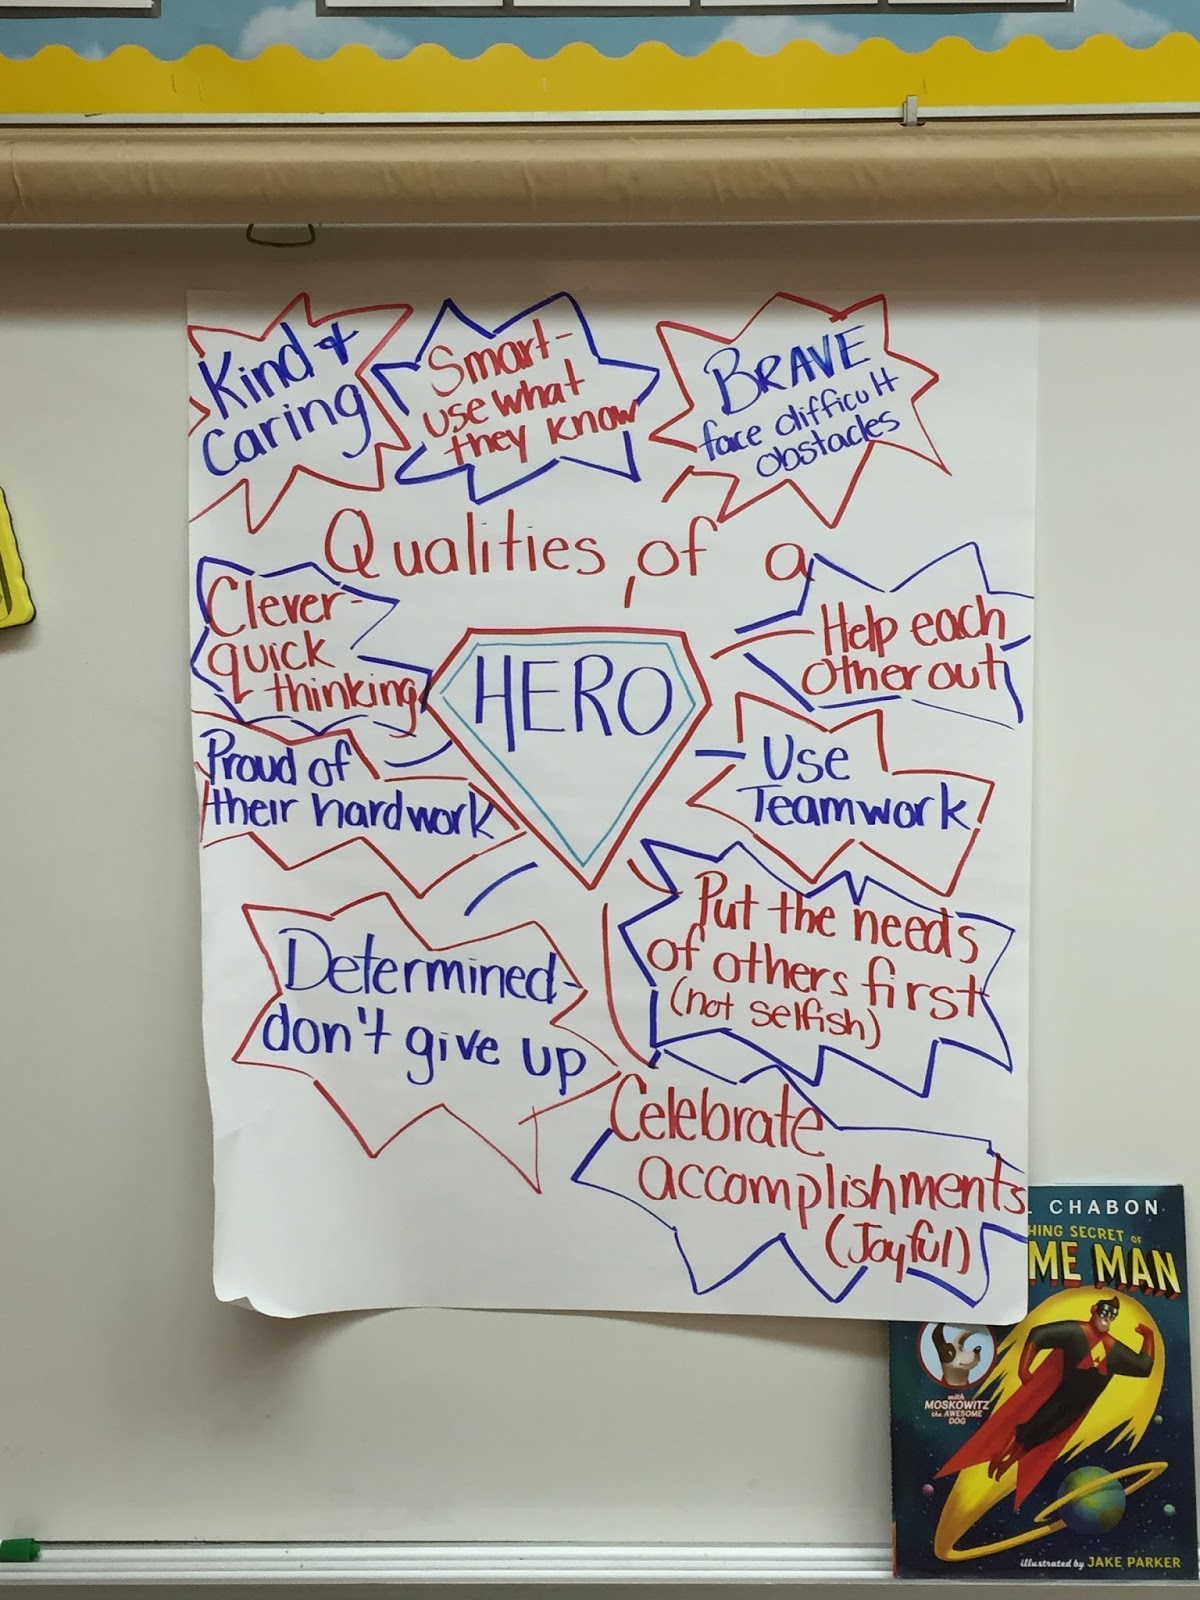 Kind &
caring
Smart-
use what
they know
BRAVE
face difficult
obstacles
Qualities of a
HERO
Clever-
quick
thinking
Help each
other out
Proud of
their hardwork
Use
Teamwork
Determined-
don't give up
Put the needs
of others first
(not selfish)
Celebrate
accomplishments
(Joyful)
CHABON
SECRET OF
ME MAN
with
MOSKOWITZ
the AWESOME
DOG
illustrated by JAKE PARKER